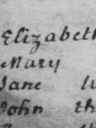 Elizabeth
Mary
Jane
John th